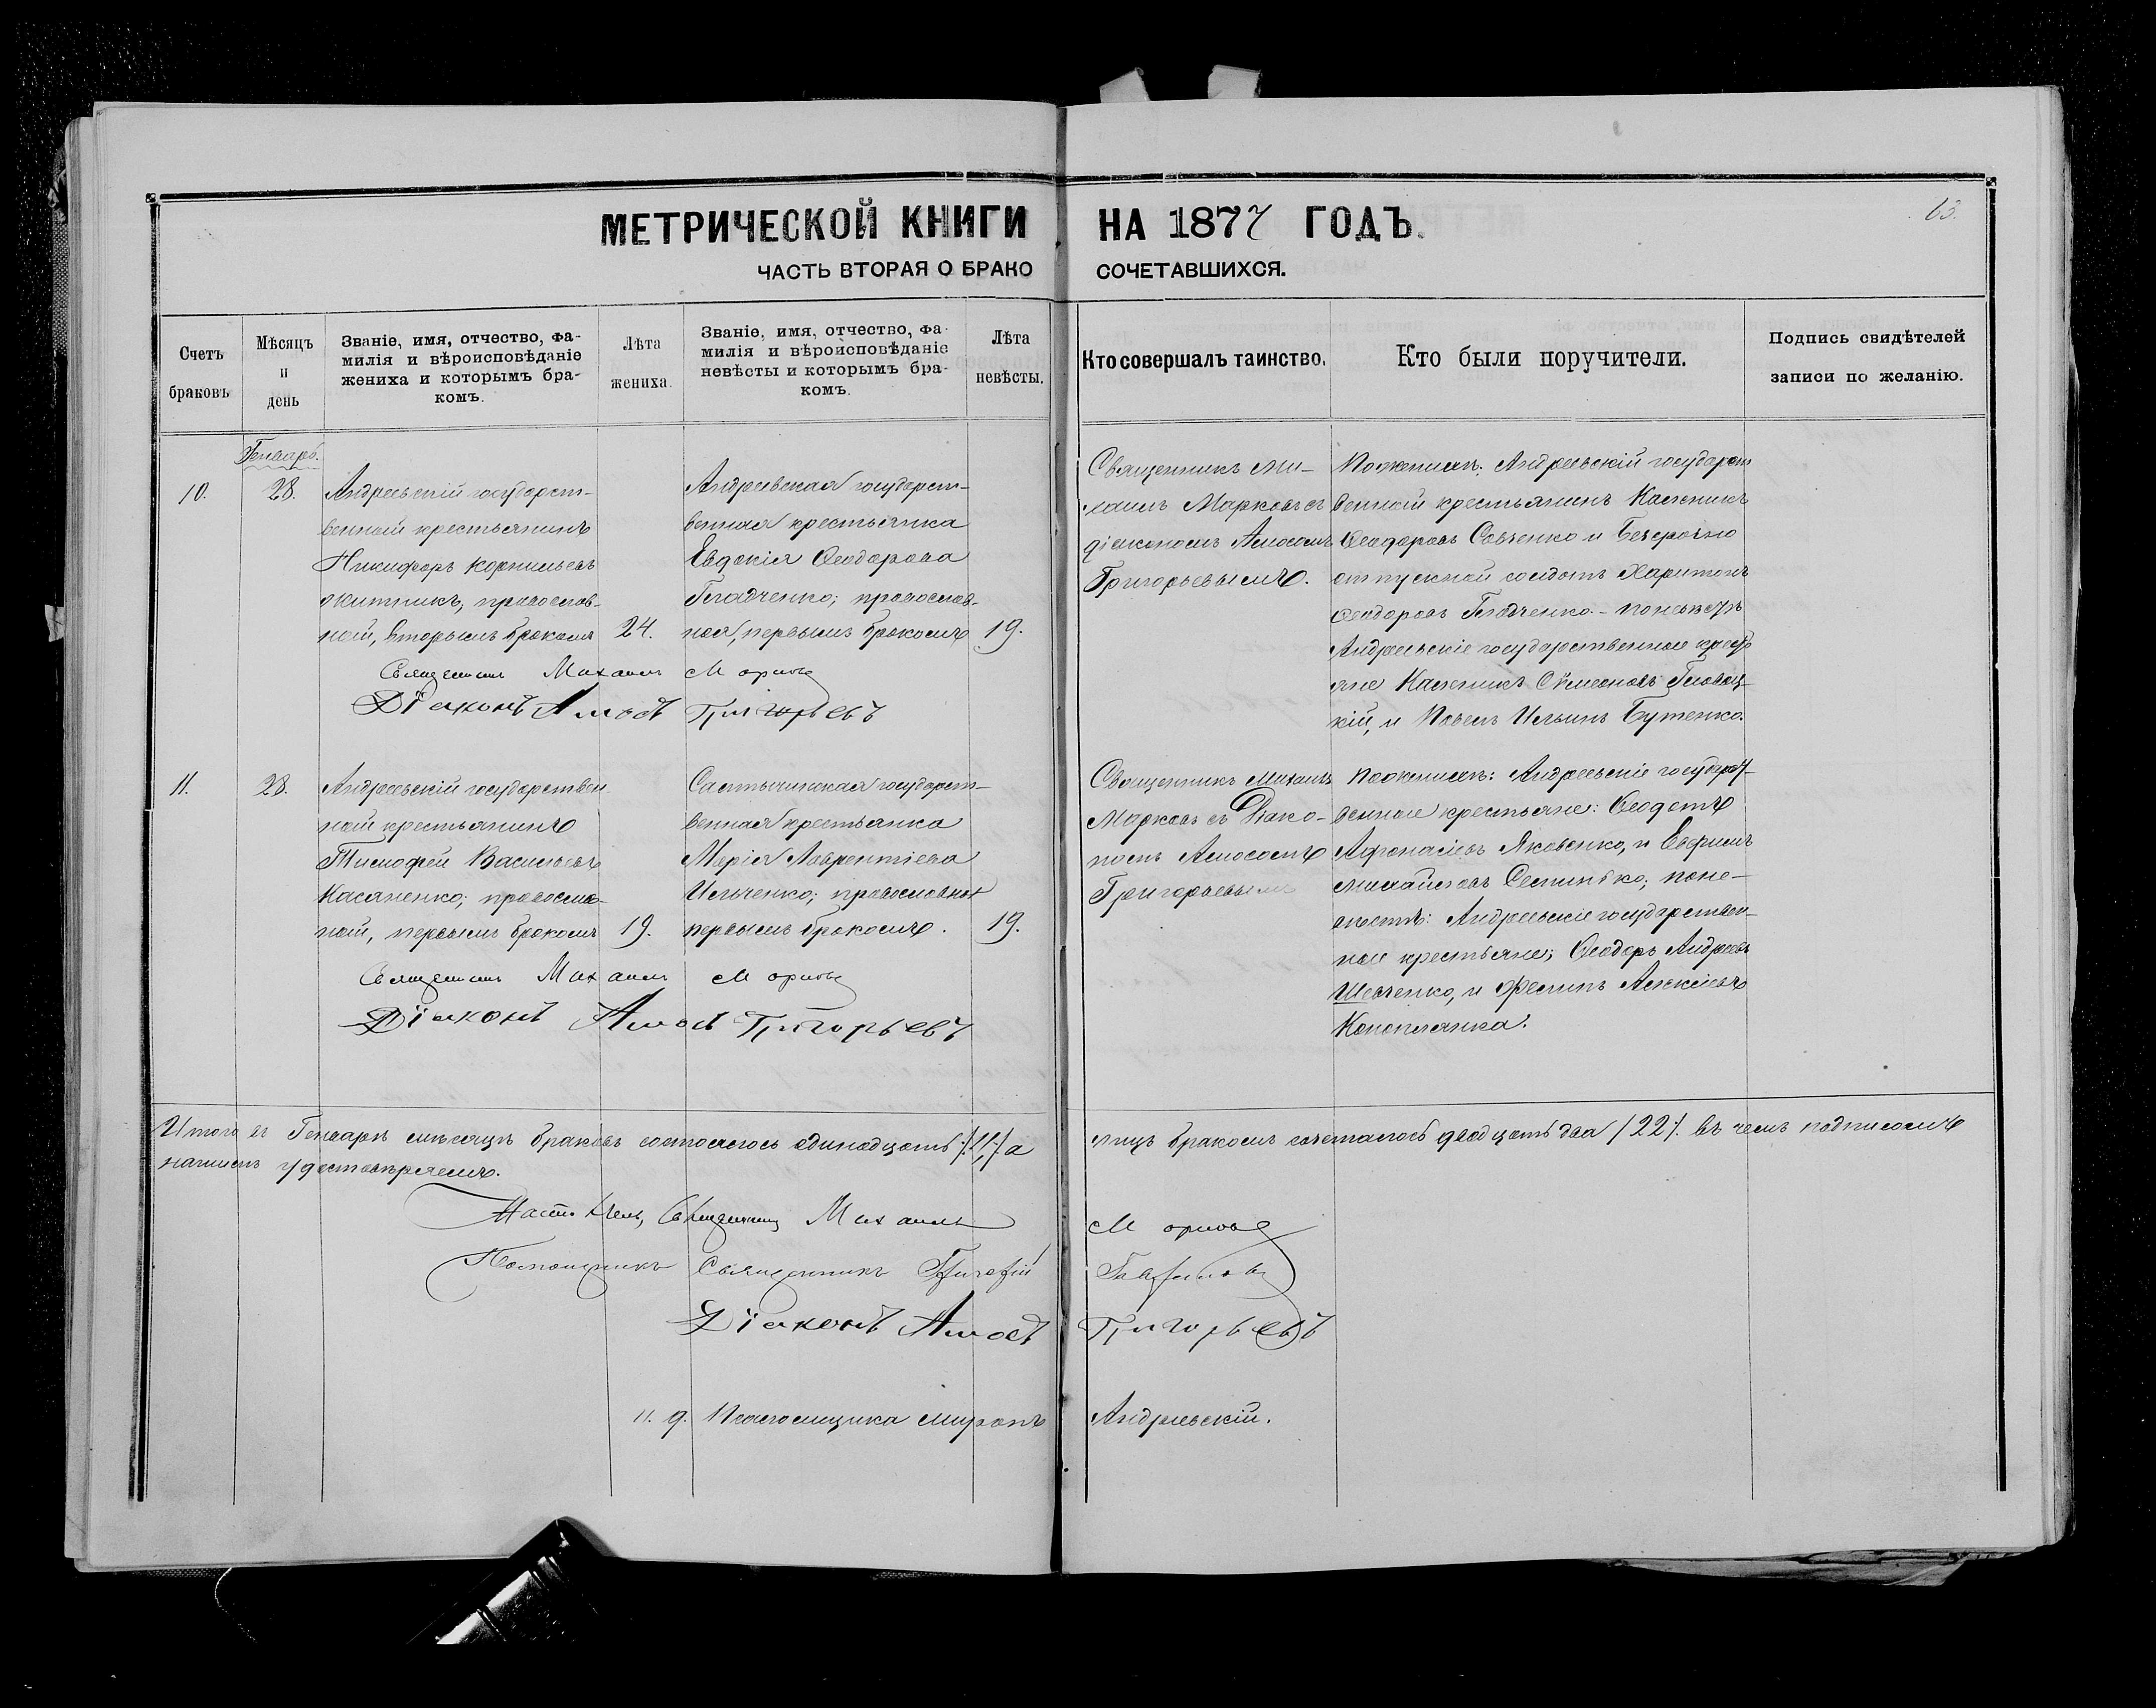 МЕТРИЧЕСКОЙ КНИГИ НА 1877 ГОДЪ.
63.
ЧАСТЬ ВТОРАЯ О БРАКОСОЧЕТАВШИХСЯ.
Счетъ
браковъ
Мѣсяцъ
и
день
Званіе, имя, отчество, фа-
милія и вѣроисповѣданіе
жениха и которымъ бра-
комъ.
Лѣта
жениха.
Званіе, имя, отчество, фа-
милія и вѣроисповѣданіе
невѣсты и которымъ бра-
комъ.
Лѣта
невѣсты.
Кто совершалъ таинство.
Кто были поручители.
Подпись свидѣтелей
записи по желанію.
Генварь.
10.
28.
Андреевскій государст-
венный крестьянинъ
Никифоръ Корнильевъ
Житникъ, православ-
ный, вторымъ бракомъ
24.
Андреевская государст-
венная крестьянка
Евдокія Ѳеодорова
православ-
ная, первымъ бракомъ
19.
Священникъ Ми-
хаилъ Марковъ съ
діакономъ Амосомъ
Григорьевымъ.
По женихѣ: Андреевскій государст
венный крестьянинъ Каленикъ
Ѳеодоровъ Савченко и безсрочно
отпускной солдатъ Харитонъ
Ѳеодоровъ по невѣстѣ
Андреевскіе государственные кресть
яне Каленикъ Сѵмеоновъ
кій, и Павелъ Ильинъ Бутенко.
Священникъ Михаилъ Марковъ
Діаконъ Амосъ Григорьевъ
11.
28.
Андреевскій государствен
ный крестьянинъ
Тимофей Васильевъ
Касяненко; православ-
ный, первымъ бракомъ
19.
государст-
венная крестьянка
Марія Лаврентіева
Ильченко; православная
первымъ бракомъ.
19.
Священникъ Михаилъ
Марковъ съ Діако-
номъ Амосомъ
Григорьевымъ
По женихѣ: Андреевскіе государст-
венные крестьяне: Ѳеодотъ
Афанасіевъ Яковенко, и Евфимъ
Михайловъ Семинько; по не-
вѣстѣ: Андреевскіе государствен-
ные крестьяне; Ѳеодоръ Андреевъ
Шевченко, и Филипъ Алексіевъ
Коноплянка.
Священникъ Михаилъ Марковъ
Діаконъ Амосъ Григорьевъ
Итого въ Генварѣ мѣсяцѣ браковъ состоялось одинадцать /:11:/ а лицъ бракомъ сочеталось двадцать два /22/. въ чемъ подписомъ
нашимъ удостовѣряемъ.
Настоятель, Священникъ Михаилъ Марковъ
Помощникъ Священникъ Григорій Гаврилова
Діаконъ Амосъ Григорьевъ
и. д. Псаломщика Миронъ Андріевскій.